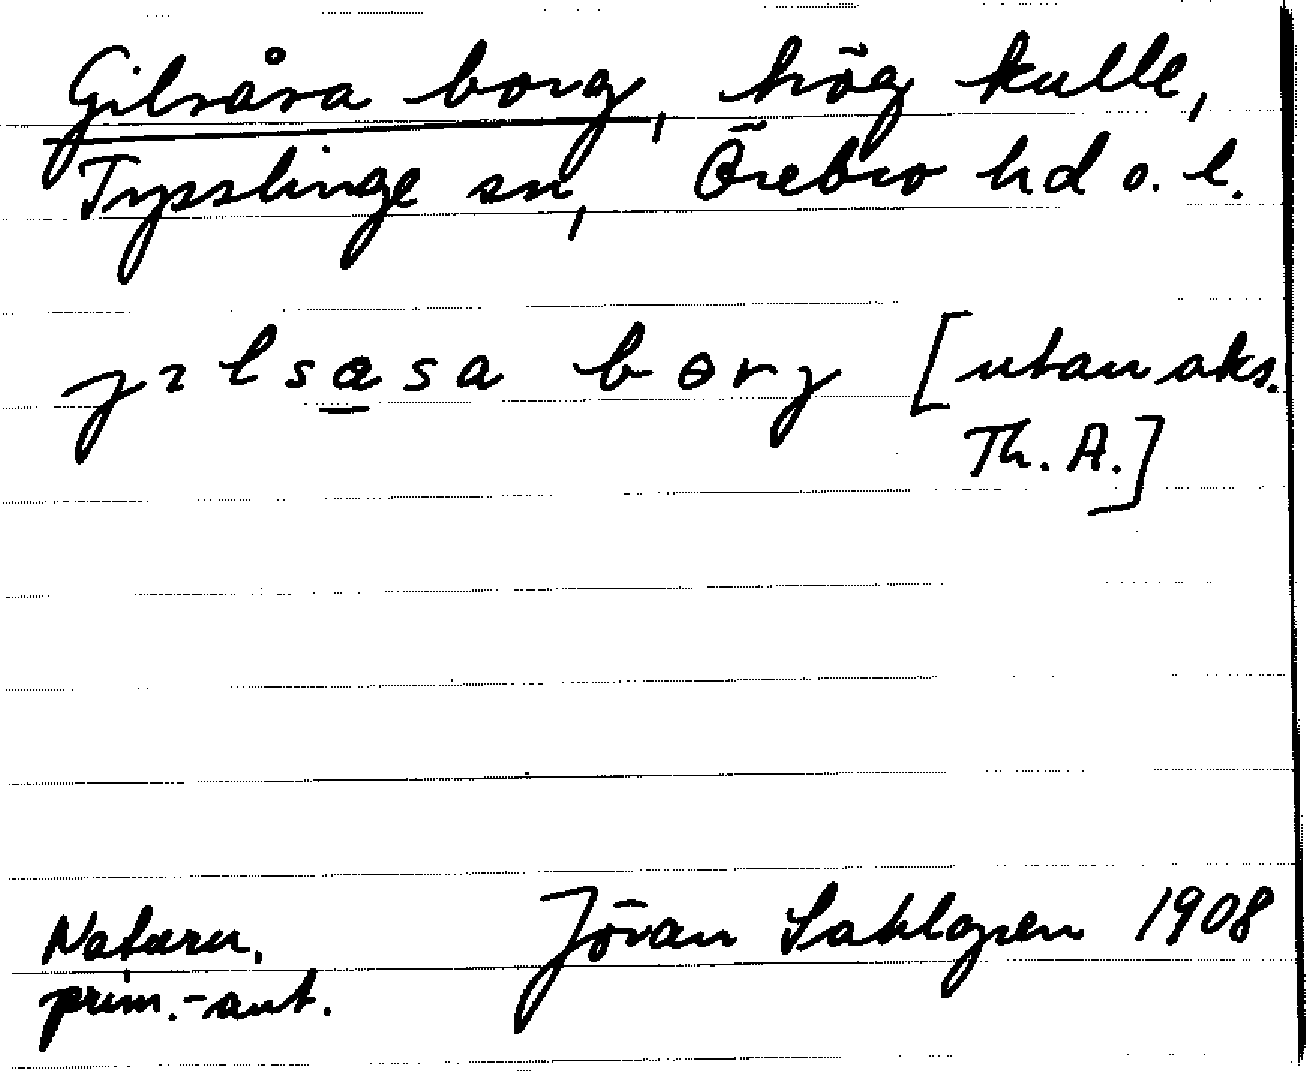 Gilsåsa borg, hög kulle,
Tysslinge sn, Örebro hd o. l.
jɿlsɑsa bɵrj [utan aks.
Th. A.]
Naturn.
prim.-ant.
Jöran Sahlgren 1908